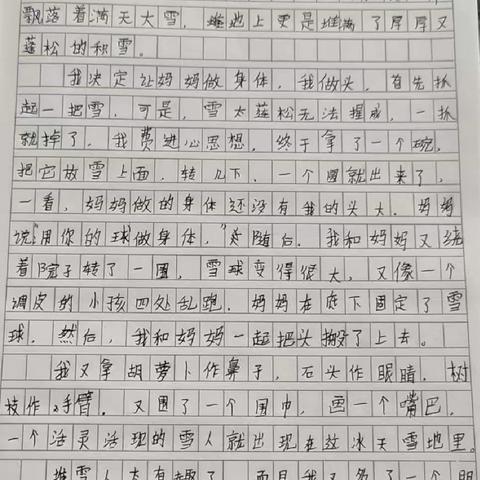 飘落着满天大雪，地上更是堆满了厚厚又
蓬松的积雪。
我决定让妈妈做身体，我做头，首先抓
起一把雪，可是，雪太蓬松无法握成，一抓
就掉了，我费进心思想，终于拿了一个碗，
把它放雪上面，转几下，一个圆就出来了，
一看，妈妈做的身体还没有我的头大，妈妈
说"用你的球做身体，"随后，我和妈妈又绕
着院子转了一圈，雪球变得很大，又像一个
调皮的小孩四处乱跑，妈妈在底下固定了雪
球，然后，我和妈妈一起把头搬了上去。
我又拿胡萝卜作鼻子，石头作眼睛，树
枝作手臂，又围了一个围巾，画一个嘴巴，
一个活灵活现的雪人就出现在这冰天雪地里。
堆雪人太有趣了，而且我又多了一个朋